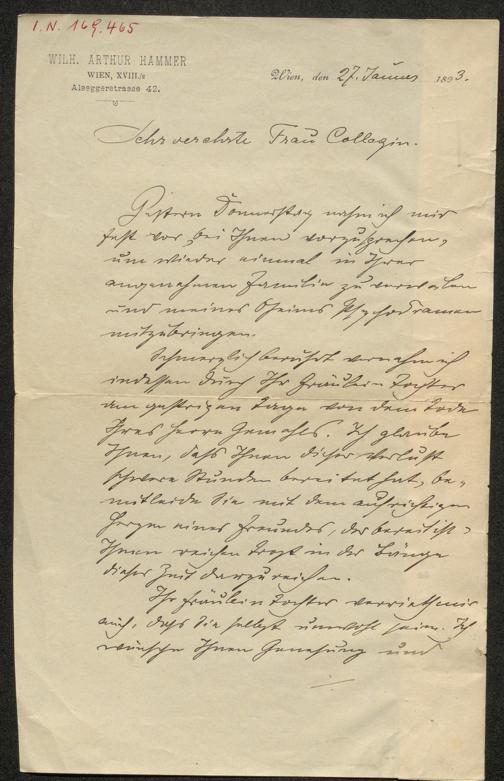 I.N. 169.465
WILH. ARTHUR HAMMER
WIEN, XVIII./2
Alseggerstrasse 42.
Wien, den 27. Januar 1893.
Sehr verehrte Frau Collegin.
Gestern Donnerstag nahm ich mir
fest vor, bei Ihnen vorzusprechen,
um wieder einmal in Ihrer
angenehmen Familie zu verweilen
und meines Oheims Psychodramen
mitzubringen.
Schmerzlich berührt vernahm ich
indessen durch Ihr Fräulein Tochter
am gestrigen Tage von dem Tode
Ihres Herrn Gemahls. Ich glaube
Ihnen, daß Ihnen dieser Verlust
schwere Stunden bereitet hat, be-
mitleide Sie mit dem aufrichtigen
Herzen eines Freundes, der bereit ist
Ihnen reichen Trost in der Länge
dieser Zeit darzureichen.
Ihr Fräulein Tochter verrieth mir
auch, daß Sie selbst unwohl seien. Ich
wünsche Ihnen Genesung und